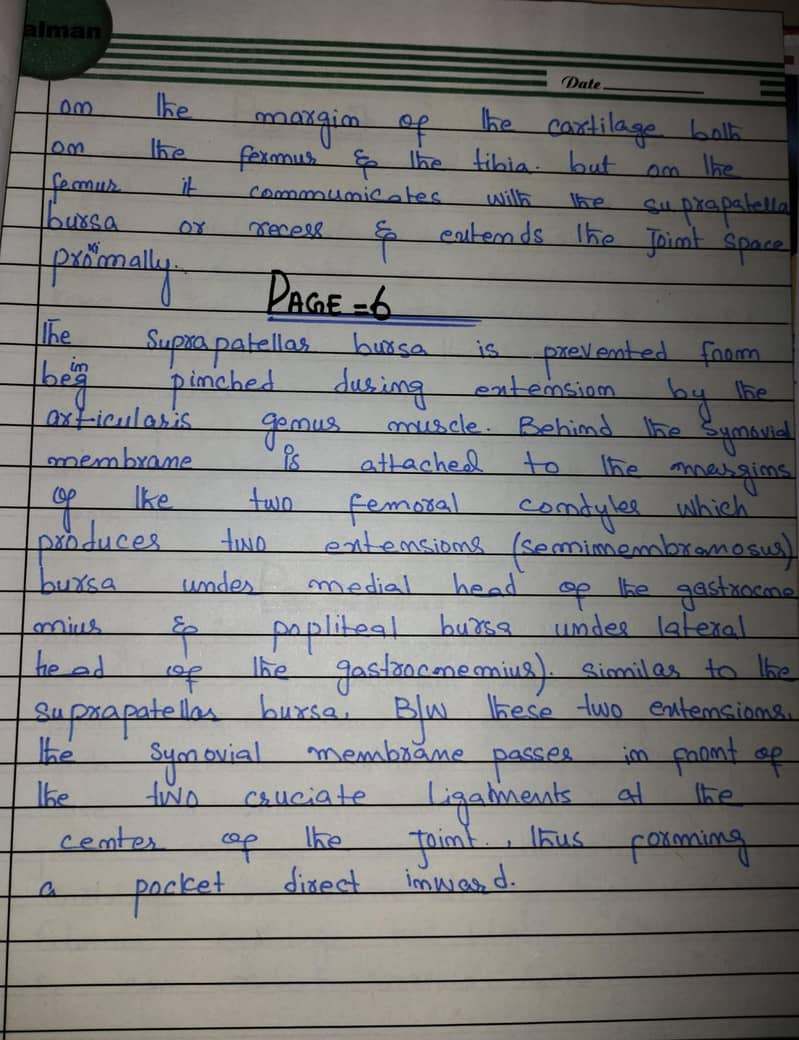 alman
Date
on the margin of the cartilage both
on the fermus & the tibia. but on the
femur it communicates with the suprapatella
bursa or recess & extends the Joint space
proximally.
PAGE = 6
The Suprapatellar bursa is prevented from
being pinched during extension by the
articularis genus muscle. Behind the Synovial
membrane is attached to the margins
of the two femoral condyles which
produces two extensions (semimembranosus)
bursa under medial head of the gastrocne
mius & popliteal bursa under lateral
head of the gastrocnemius). similar to the
suprapatellar bursa. B/W these two extensions.
the synovial membrane passes in front of
the two cruciate ligatments at the
center of the Joint., thus forming
a pocket direct inward.